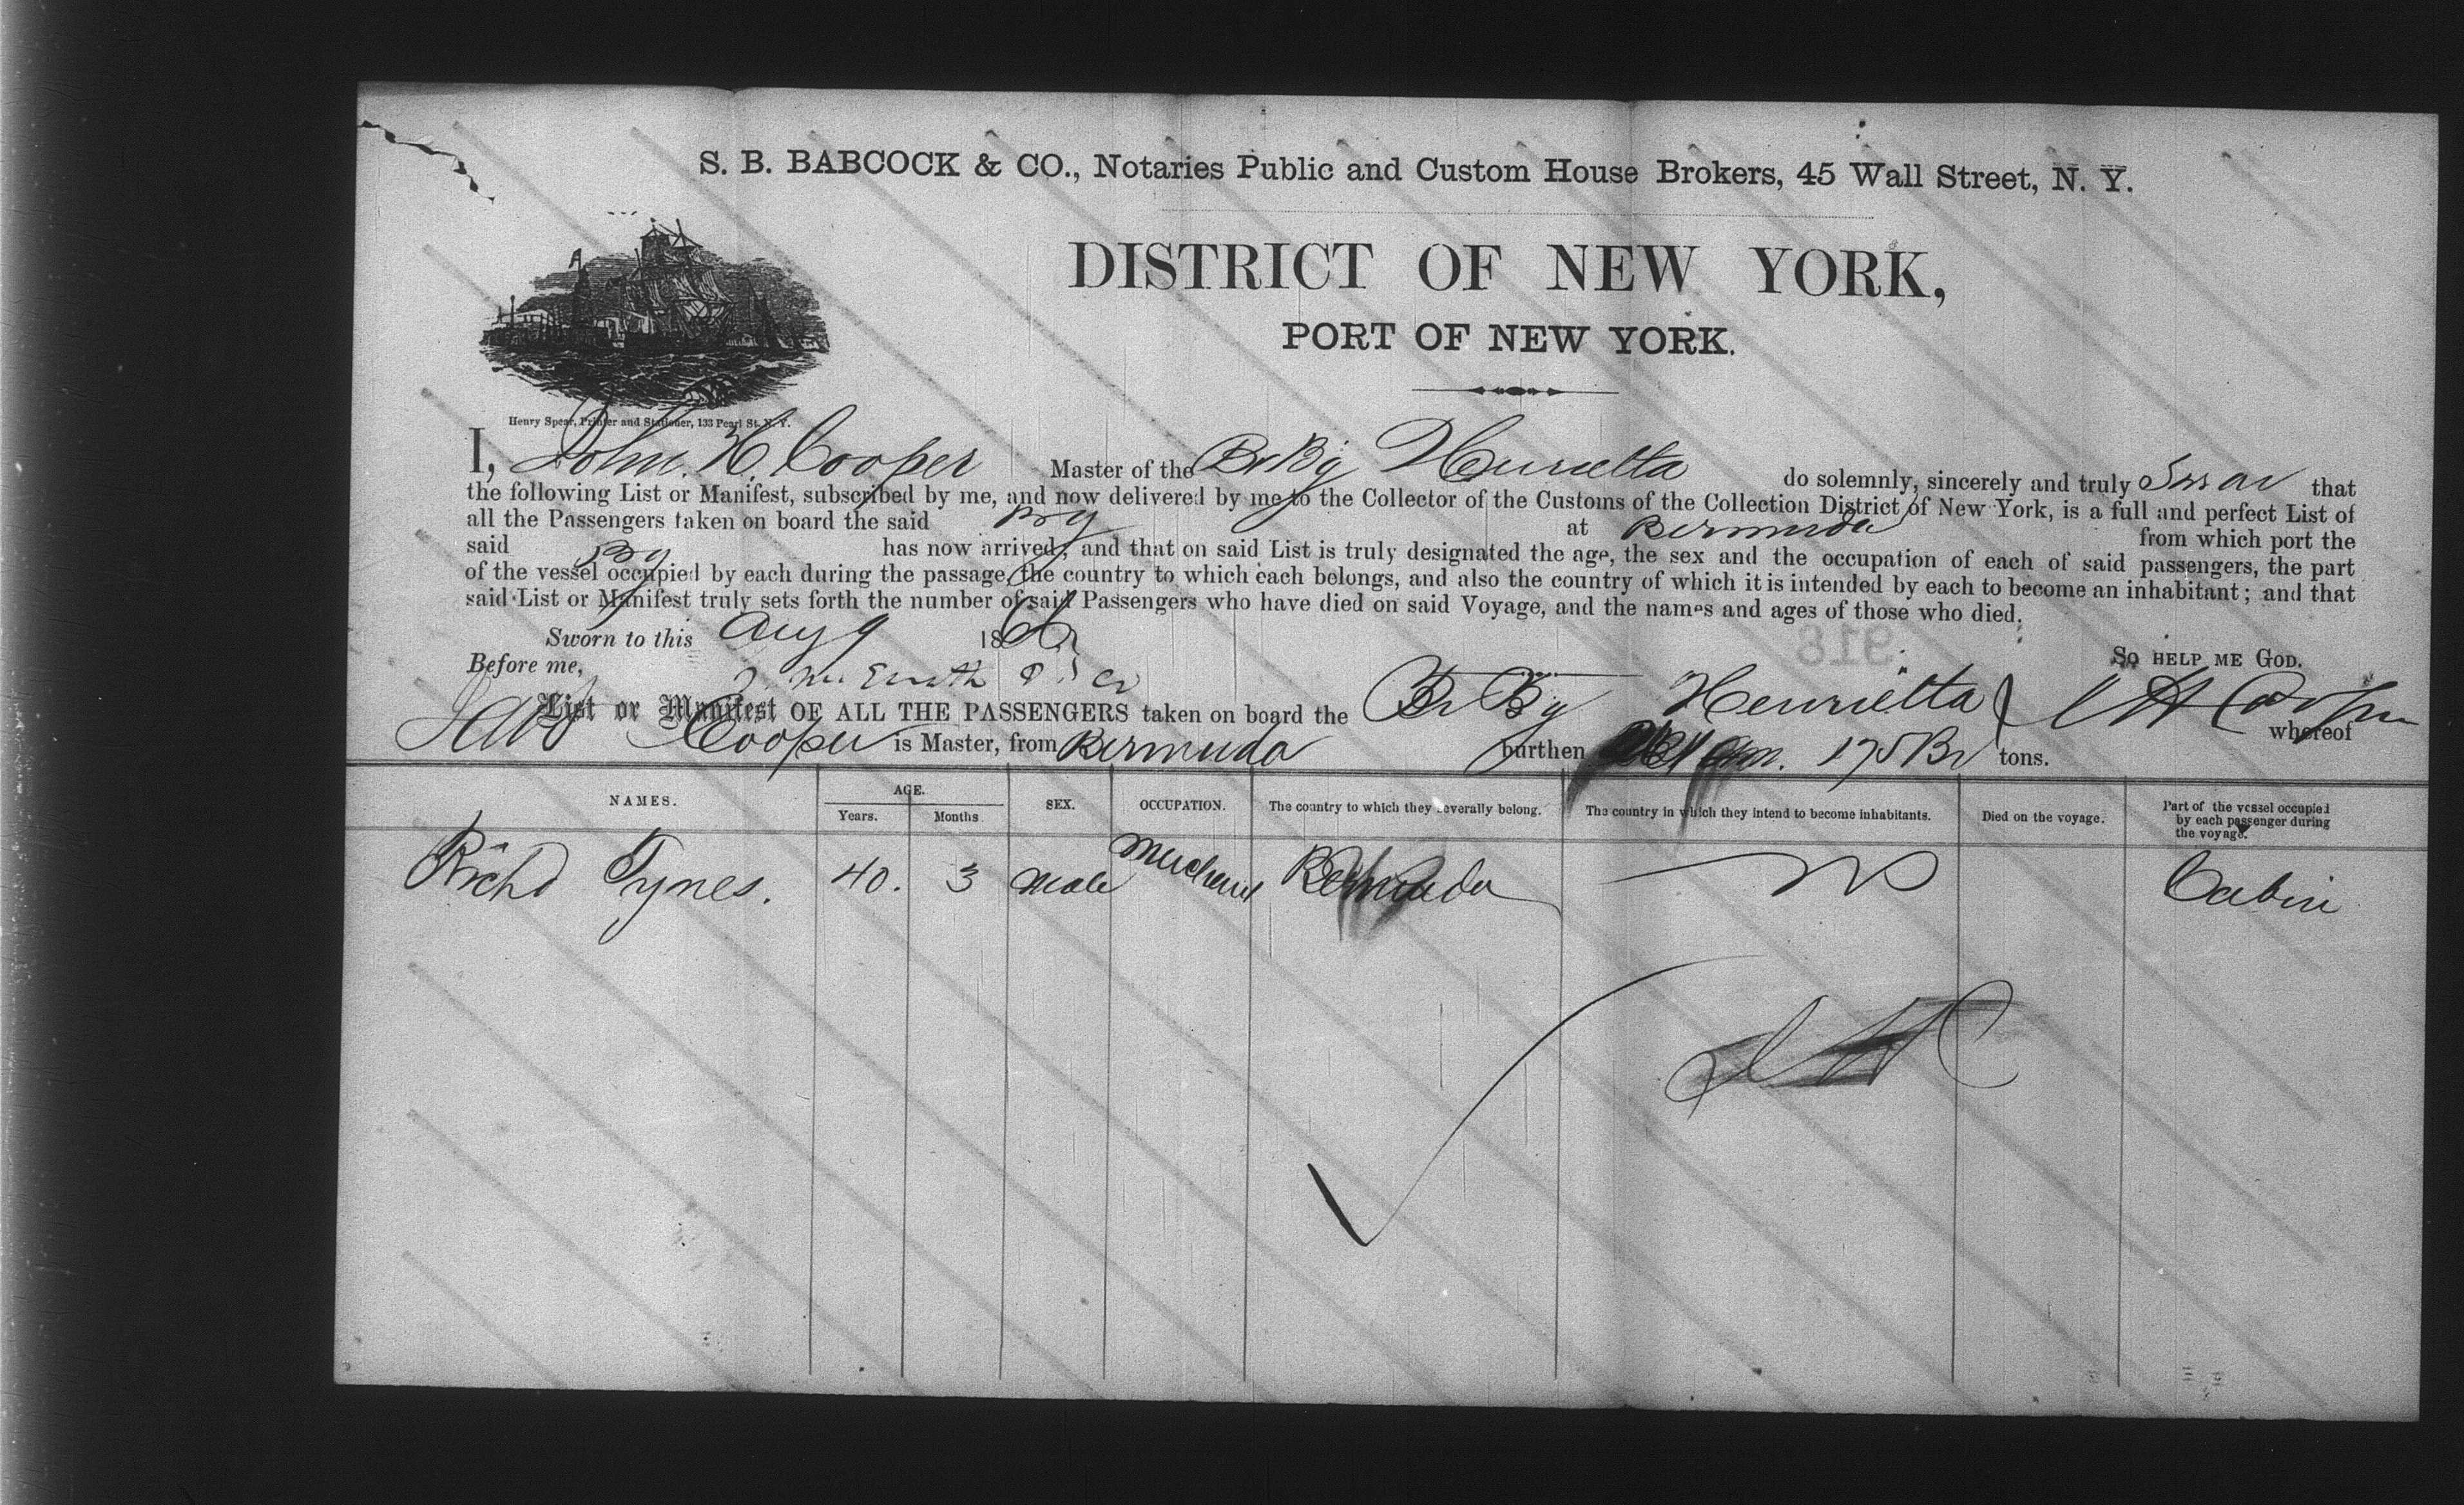 S. B. BABCOCK & CO., Notaries Public and Custom House Brokers, 45 Wall Street, N. Y.
DISTRICT OF NEW YORK,
PORT OF NEW YORK.
Henry Spear, Printer and Stationer, 133 Pearl St. N. Y.
I, John H. Cooper Master of the Br Bg Henrietta do solemnly, sincerely and truly Swear that
the following List or Manifest, subscribed by me, and now delivered by me to the Collector of the Customs of the Collection District of New York, is a full and perfect List of
all the Passengers taken on board the said Brg at Bermuda from which port the
said Brg has now arrived; and that on said List is truly designated the age, the sex and the occupation of each of said passengers, the part
of the vessel occupied by each during the passage, the country to which each belongs, and also the country of which it is intended by each to become an inhabitant; and that
said List or Manifest truly sets forth the number of said Passengers who have died on said Voyage, and the names and ages of those who died.
Sworn to this Aug 9 18
916
Before me, So HELP ME GOD.
List or Manifest OF ALL THE PASSENGERS taken on board the Br Bg Henrietta J H Cooper whereof
Cooper is Master, from Bermuda burthen 175 Br tons.
NAMES. AGE. SEX. OCCUPATION. The country to which they severally belong. The country in which they intend to become inhabitants. Died on the voyage. Part of the vessel occupied by each passenger during the voyage.
Years. Months
Richd Tynes. 40. 3 Male Merchant Bermuda Cabin
J H C